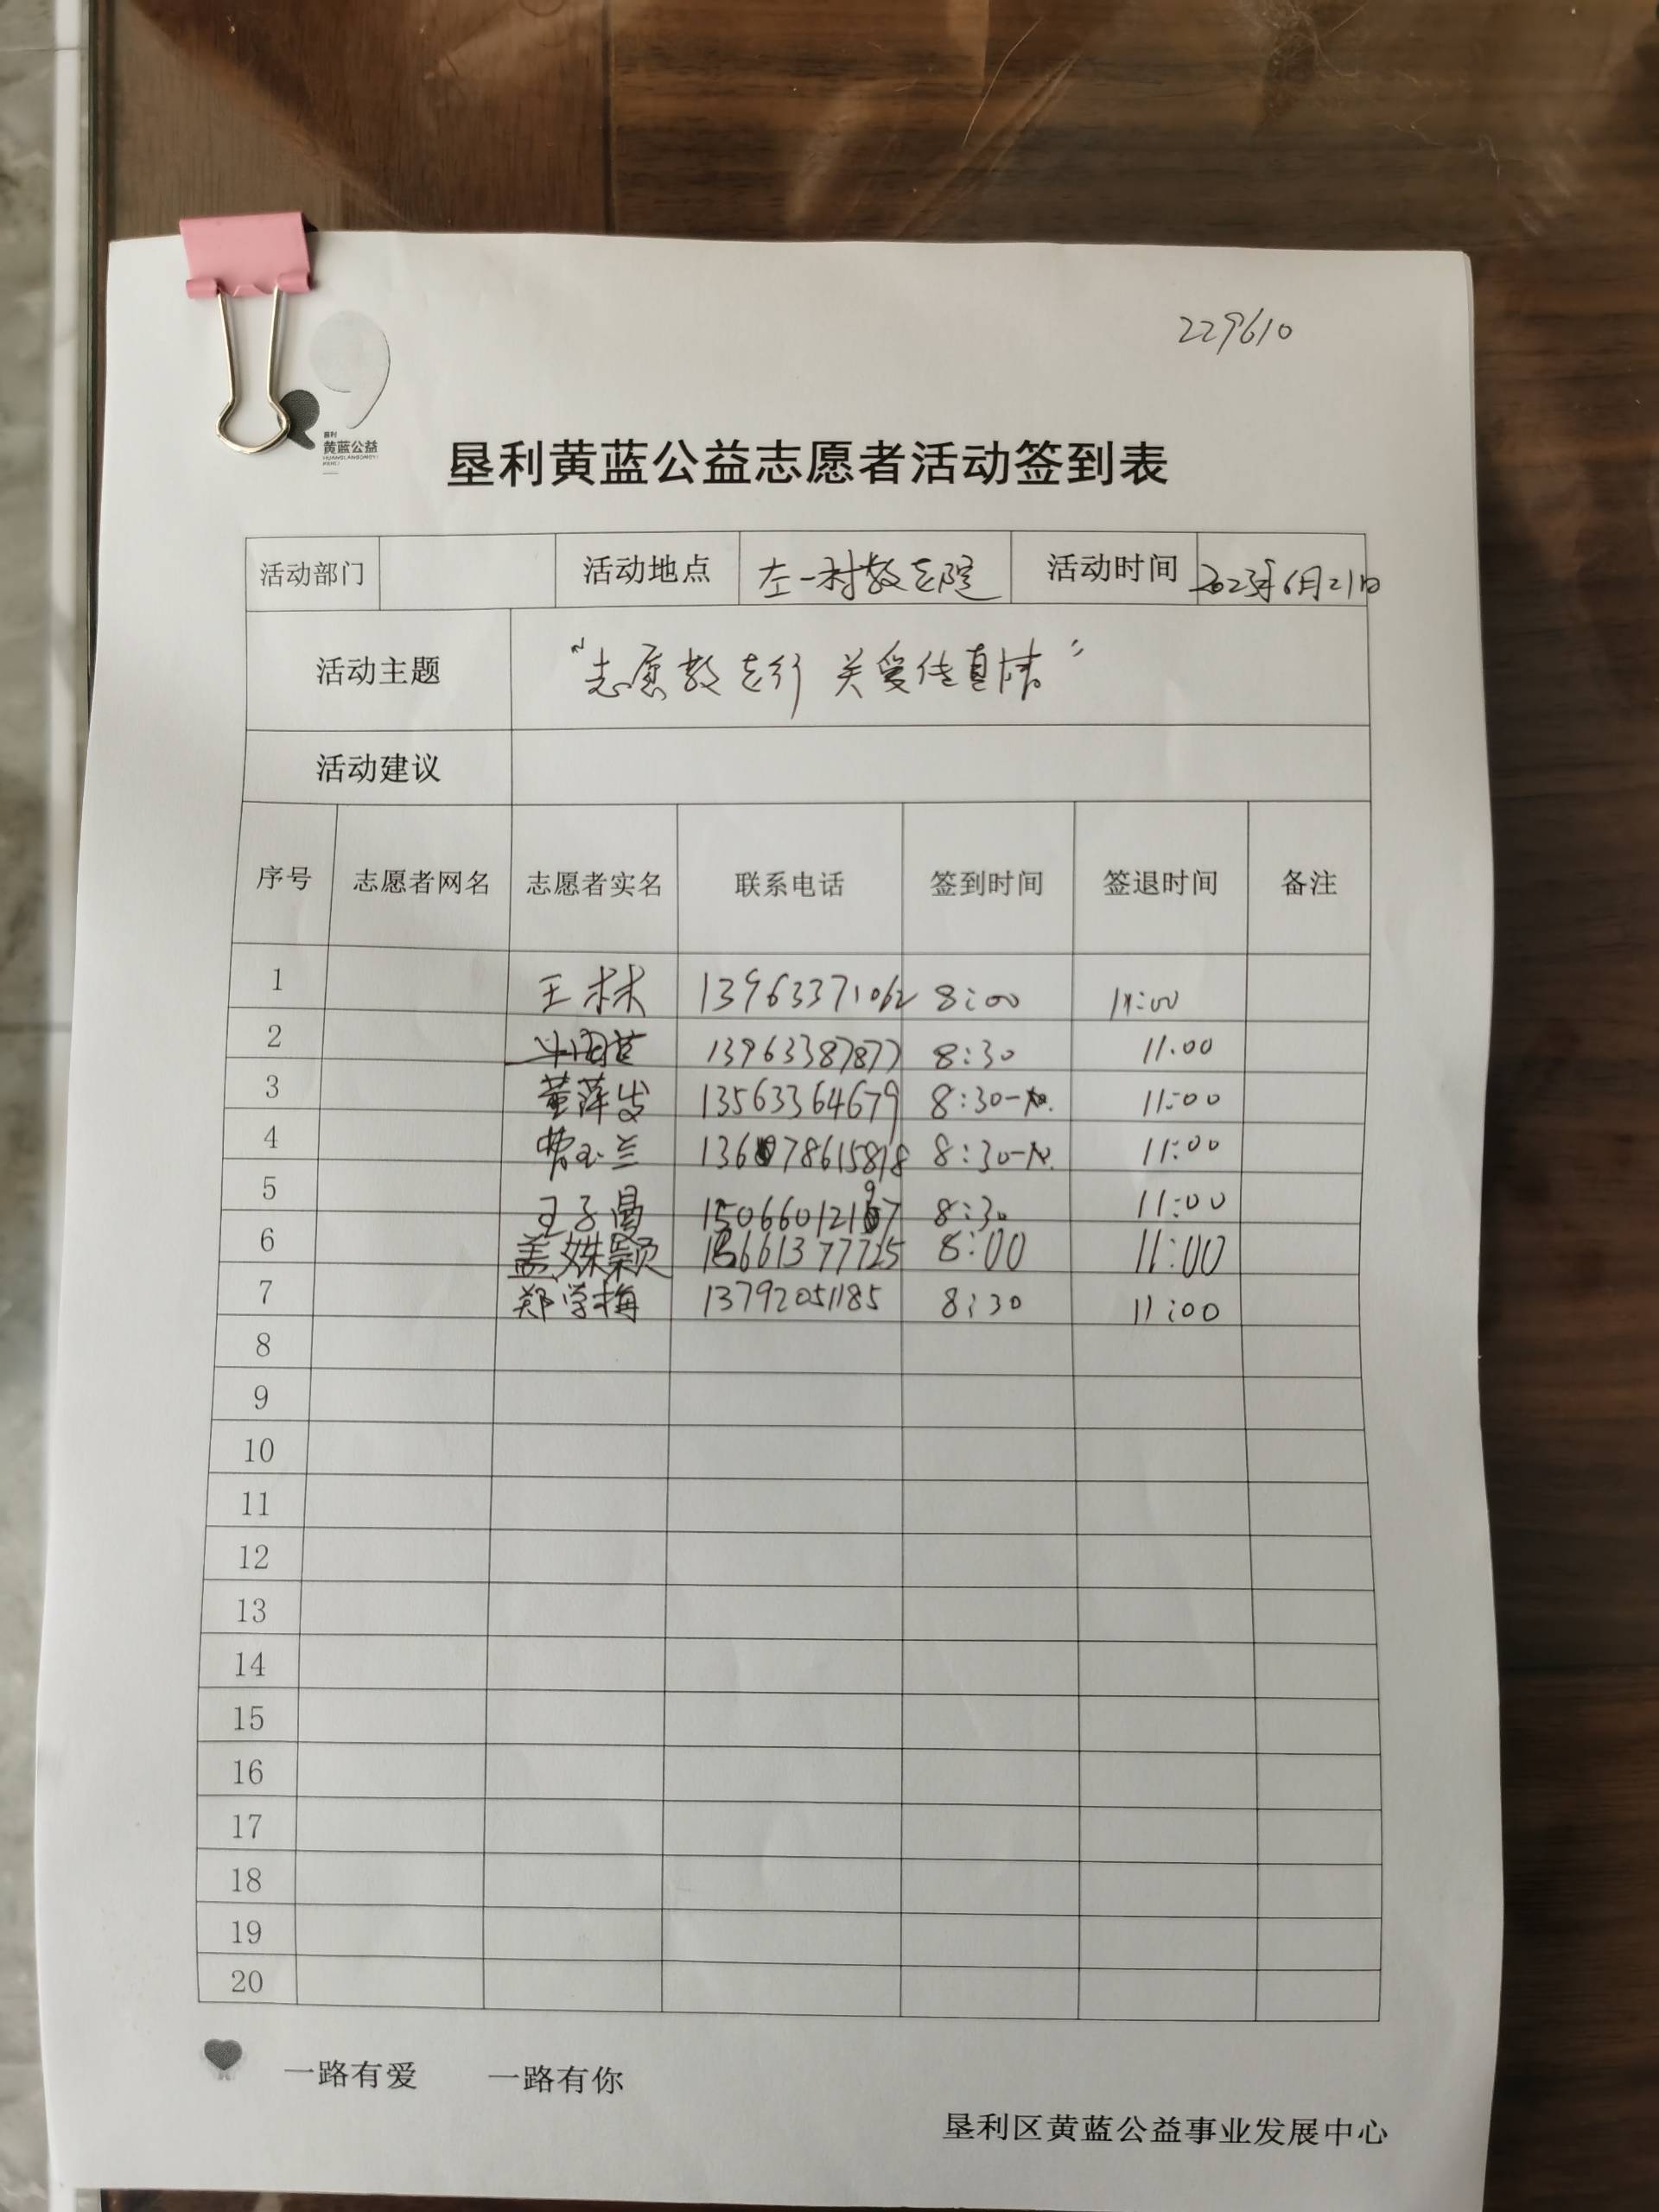 229610
垦利
黄蓝公益
垦利黄蓝公益志愿者活动签到表
活动部门 活动地点 左一村敬老院 活动时间 2023年6月21日
活动主题 “志愿敬老行 关爱传真情”
活动建议
序号 志愿者网名 志愿者实名 联系电话 签到时间 签退时间 备注
1 王林 13963371062 8:00 11:00
2 13963387877 8:30 11:00
3 董萍 13563364679 8:30 11:00
4 曹玉兰 8:30 11:00
5 王子曼 8:30 11:00
6 盖姝颖 8:00 11:00
7 郑学梅 13792051185 8:30 11:00
8
9
10
11
12
13
14
15
16
17
18
19
20
一路有爱 一路有你
垦利区黄蓝公益事业发展中心